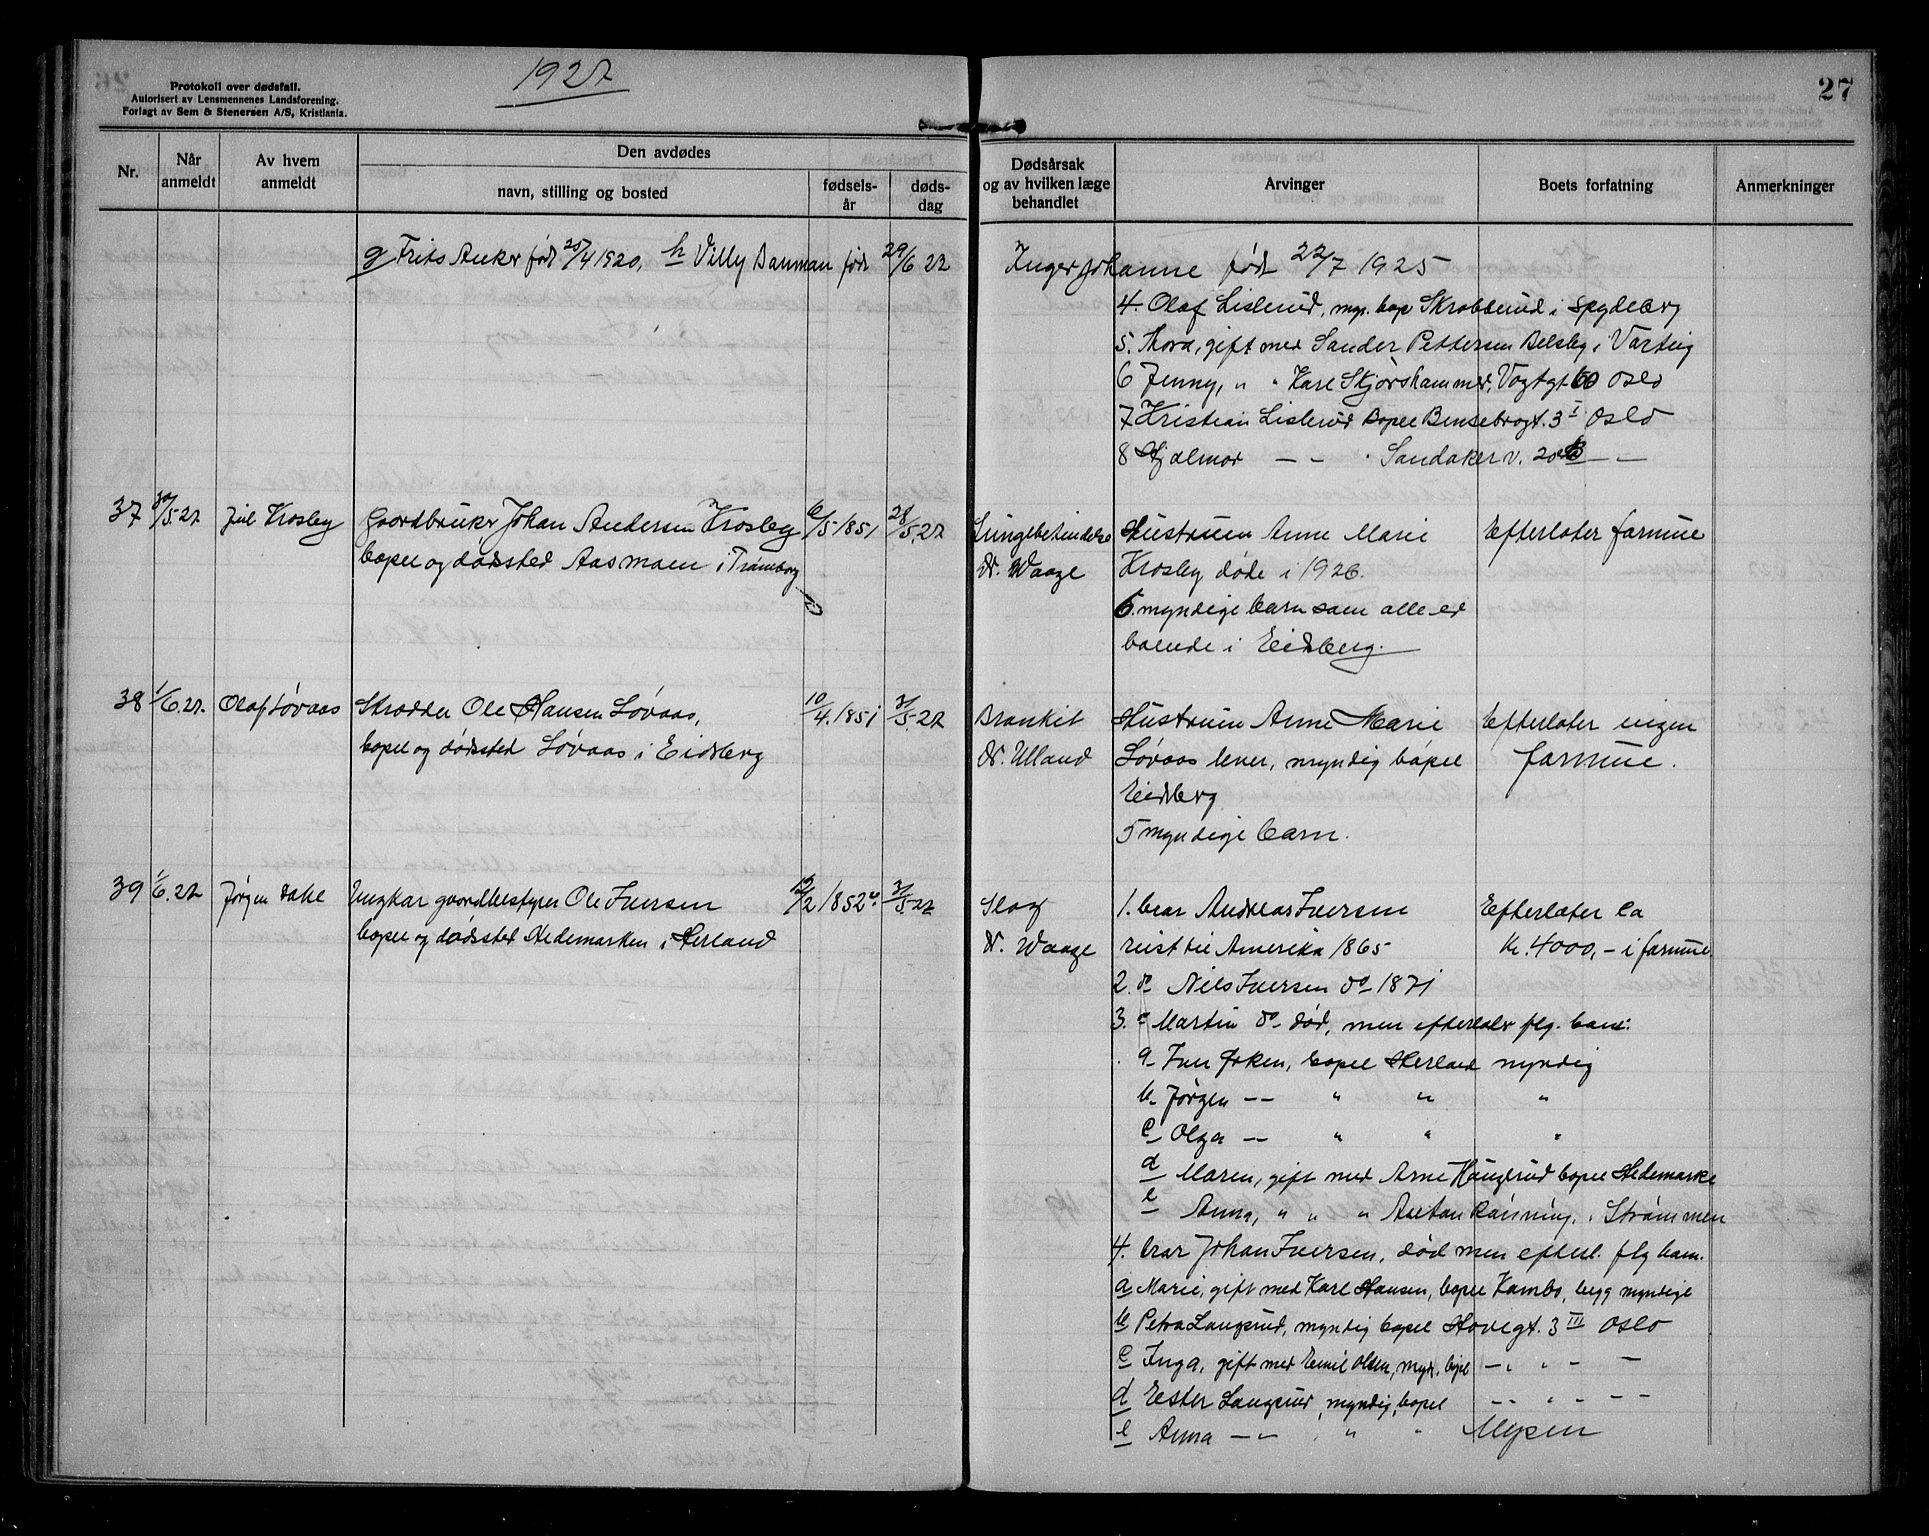 Protokoll over dødsfall.
Autorisert av Lensmennenes Landsforening.
Forlagt av Sem & Stenersen A/S, Kristiania.
1927
27
Nr.
Når anmeldt
Av hvem anmeldt
Den avdødes
navn, stilling og bosted
fødsels-år
døds-dag
Dødsårsak og av hvilken læge behandlet
Arvinger
Boets forfatning
Anmerkninger
g Frits Anker født 25/4 1920, h Villy Danman født 29/6 22
Inger Johanne født 22/7 1925
4. Olaf Lislerud, myn. bop Skrobberud i Spydeberg
5. Thora, gift med Sander Pettersen Belsby i Varteig
6 Jenny, " " Karl Skjørshammer, Vogtgt 60 Oslo
7 Kristian Lislerud Bopel Bensebrogt. 3 I Oslo
8 Hjalmar — — " Sandakerv. 20 B — —
37 30/5-27 Jul Krosby Gaardbruker Johan Andersen Krosby 6/5 1851 28/5.27 Lungebetændelse Hustruen Anne Marie Efterlater formue
bopel og dødssted Aasmoen i Trømborg Dr. Waage Krosby døde i 1926.
6 myndige barn som alle er
boende i Eidsberg.
38 1/6.27. Olaf Løvaas Skrædder Ole Hansen Løvaas, 10/4.1851 31/5.27 Bronkit Hustruen Anne Marie Efterlater ingen
bopel og dødssted Løvaas i Eidsberg Dr. Ulland Løvaas lever, myndig bopel formue.
Eidsberg
5 myndige barn.
39 1/6.27 Jørgen Ungkar gaardbestyrer Ole Iversen 12/2 1852 31/5-27 Slag 1. bror Andreas Iversen Efterlater ca
bopel og dødssted Hedemarken i Herland Dr. Waage reist til Amerika 1865 Kr. 4000,- i formue.
2. do Nils Iversen do 1871
3. " Martin do død, men efterlater flg. barn:
a Iver bopel Herland myndig
b. Jørgen — — " " "
c Olga — " " "
d Maren, gift med Arne Haugerud bopel Hedemarke
e Anna, " " " Anton Rønning, " Strømmen
4. bror Johan Iversen, død men efterl. flg barn.
a Marie, gift med Karl Hansen, bopel Kambo, begg myndige
b Petra Langsrud, myndig bopel Hovegt. 3 III Oslo
c Inga, gift med Emil Olsen, mynd. bopel — " " — —
d Ester Langsrud, myndig, bopel — " " — —
e Anna — — " " Mysen